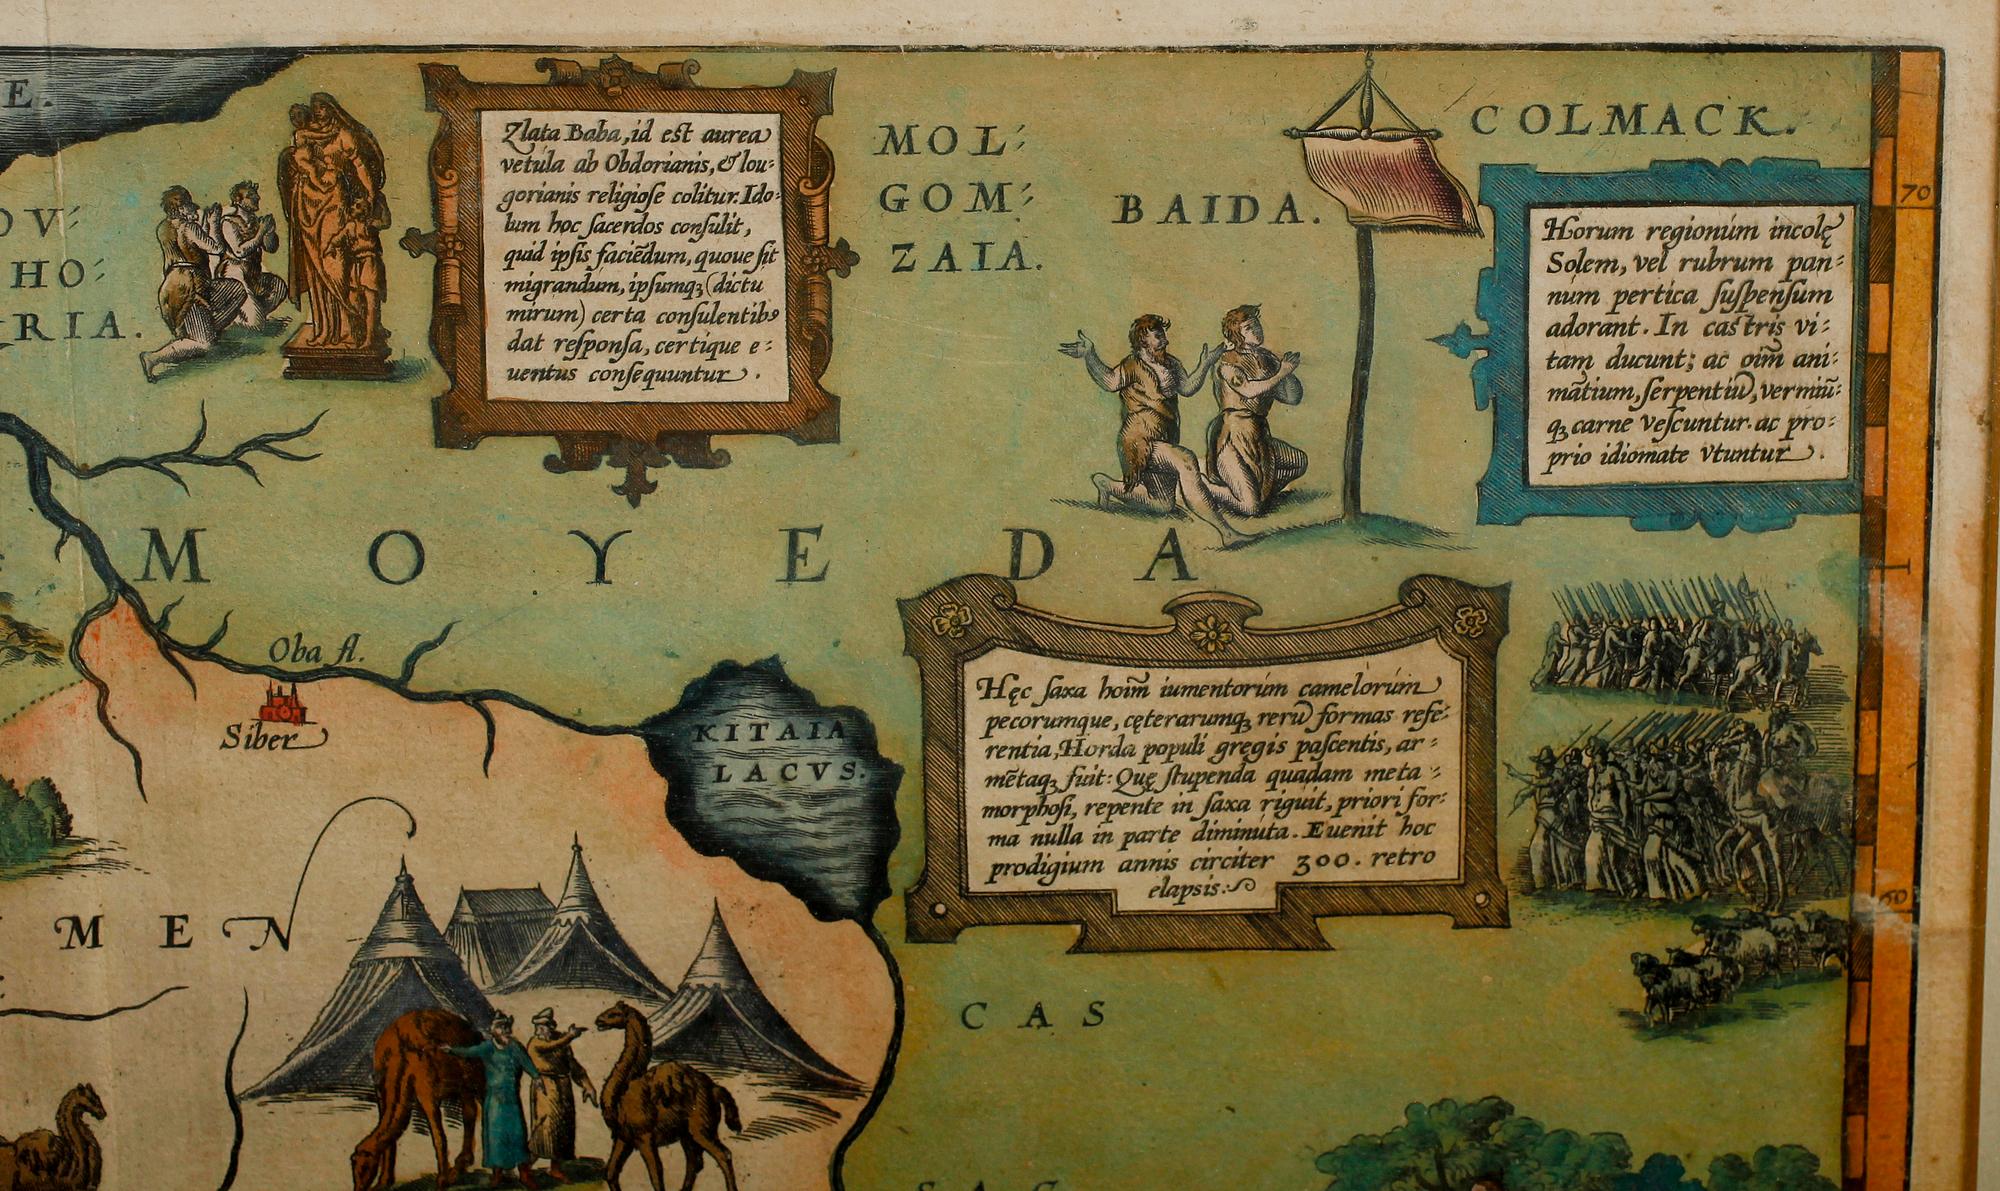 E.
OV⸗
HO⸗
RIA.
Zlata Baba, id est aurea
vetula ab Obdorianis, & Iou⸗
gorianis religiose colitur. Ido⸗
lum hoc sacerdos consulit,
quid ipsis faciēdum, quoue sit
migrandum, ipsumqꝫ (dictu
mirum) certa consulentibꝰ
dat responsa, certique e⸗
uentus consequuntur.
MOL⸗
GOM⸗
ZAIA.
BAIDA.
COLMACK.
70
Horum regionum incolę
Solem, vel rubrum pan⸗
num pertica suspensum
adorant. In castris vi⸗
tam ducunt; ac oīm ani⸗
mātium, serpentiū, vermiū⸗
qꝫ carne vescuntur. ac pro⸗
prio idiomate vtuntur.
MOYEDA
Oba fl.
Siber
KITAIA
LACVS.
Hęc saxa hoīm iumentorum camelorum
pecorumque, cęterarumqꝫ rerū formas refe⸗
rentia, Horda populi gregis pascentis, ar⸗
mētaqꝫ fuit: Quę stupenda quadam meta⸗
morphosi, repente in saxa riguit, priori for⸗
ma nulla in parte diminuta. Euenit hoc
prodigium annis circiter 300. retro
elapsis.
60
MEN
CAS